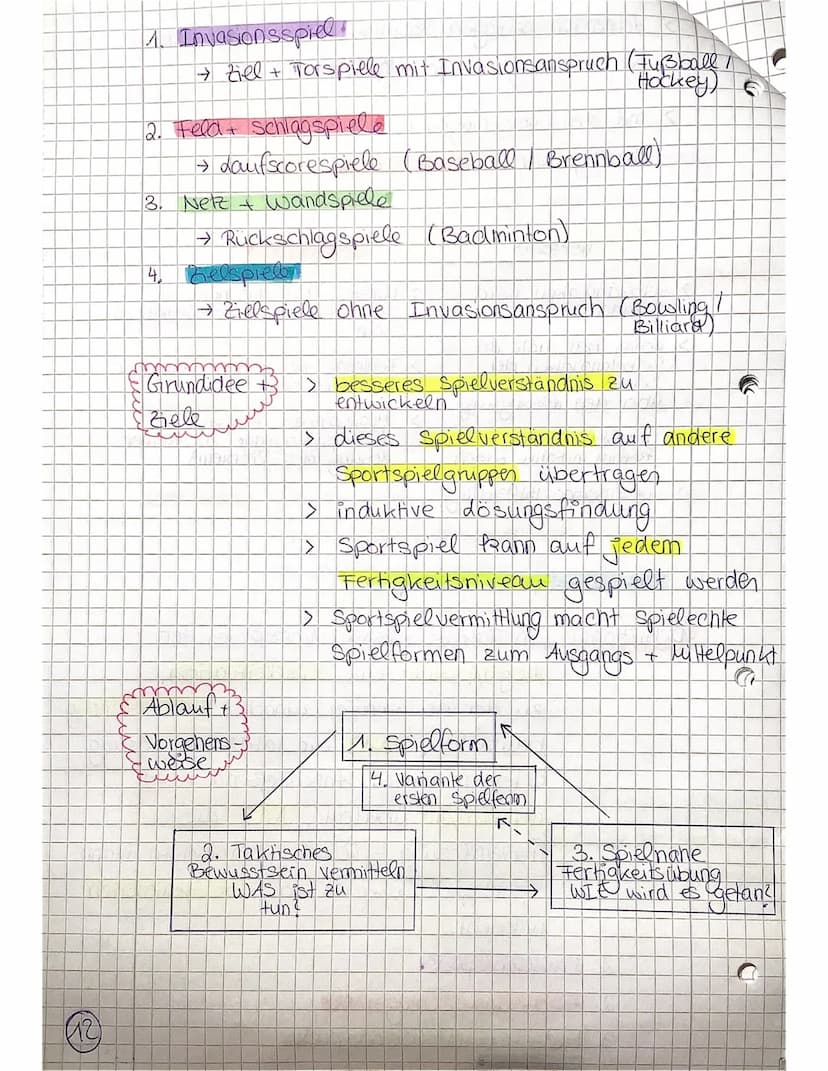 1. Invasionsspiel
→ Ziel + Torspiele mit Invasionsanspruch (Fußball /
Hockey)
2. Feld + Schlagspiele
→ Laufscorespiele (Baseball / Brennball)
3. Netz + Wandspiele
→ Rückschlagspiele (Badminton)
4. Zielspiele
→ Zielspiele ohne Invasionsanspruch (Bowling /
Billiard)
Grundidee +
Ziele
> besseres Spielverständnis zu
entwickeln
> dieses Spielverständnis auf andere
Sportspielgruppen übertragen
> induktive Lösungsfindung
> Sportspiel kann auf jedem
Fertigkeitsniveau gespielt werden
> Sportspielvermittlung macht spielechte
Spielformen zum Ausgangs + Mittelpunkt
Ablauf +
Vorgehens-
weise
1. Spielform
4. Variante der
ersten Spielform
2. Taktisches
Bewusstsein vermitteln
WAS ist zu
tun?
3. Spielnahe
Fertigkeitsübung
WIE wird es getan?
12